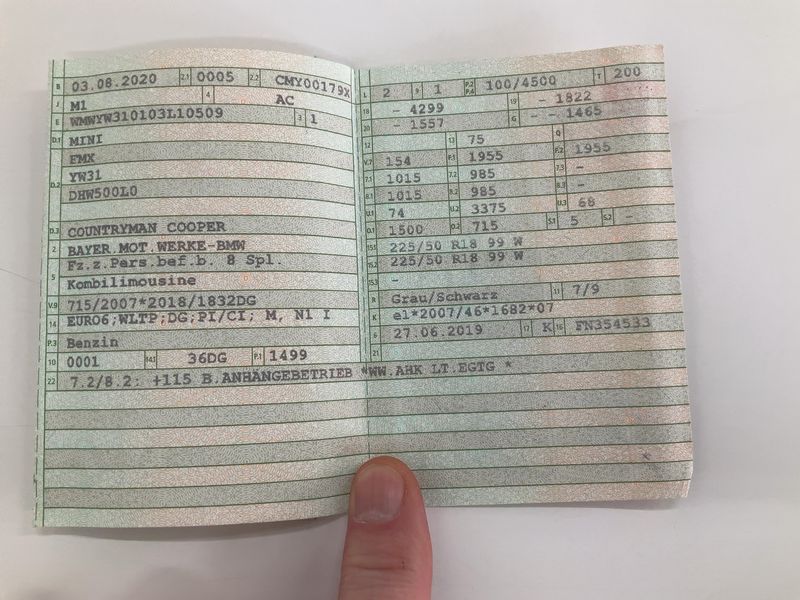 B 03.08.2020 2.1 0005 2.2 CMY00179X
J M1 4 AC
E WMWYW310103L10509 3 1
D.1 MINI
FMX
D.2 YW31
DHW500L0
D.3 COUNTRYMAN COOPER
2 BAYER.MOT.WERKE-BMW
Fz.z.Pers.bef.b. 8 Spl.
5 Kombilimousine
V.9 715/2007*2018/1832DG
14 EURO6;WLTP;DG;PI/CI; M, N1 I
P.3 Benzin
10 0001 14.1 36DG P.1 1499
22 7.2/8.2: +115 B.ANHÄNGEBETRIEB *WW.AHK LT.EGTG *
L 2 9 1 P.2 P.4 100/4500 T 200
18 - 4299 19 - 1822
20 - 1557 G - - 1465
12 - 13 75 Q -
V.7 154 F.1 1955 F.2 1955
7.1 1015 7.2 985 7.3 -
8.1 1015 8.2 985 8.3 -
U.1 74 U.2 3375 U.3 68
O.1 1500 O.2 715 S.1 5 S.2 -
15.1 225/50 R18 99 W
15.2 225/50 R18 99 W
15.3 -
R Grau/Schwarz 11 7/9
K e1*2007/46*1682*07
6 27.06.2019 17 K 16 FN354533
21